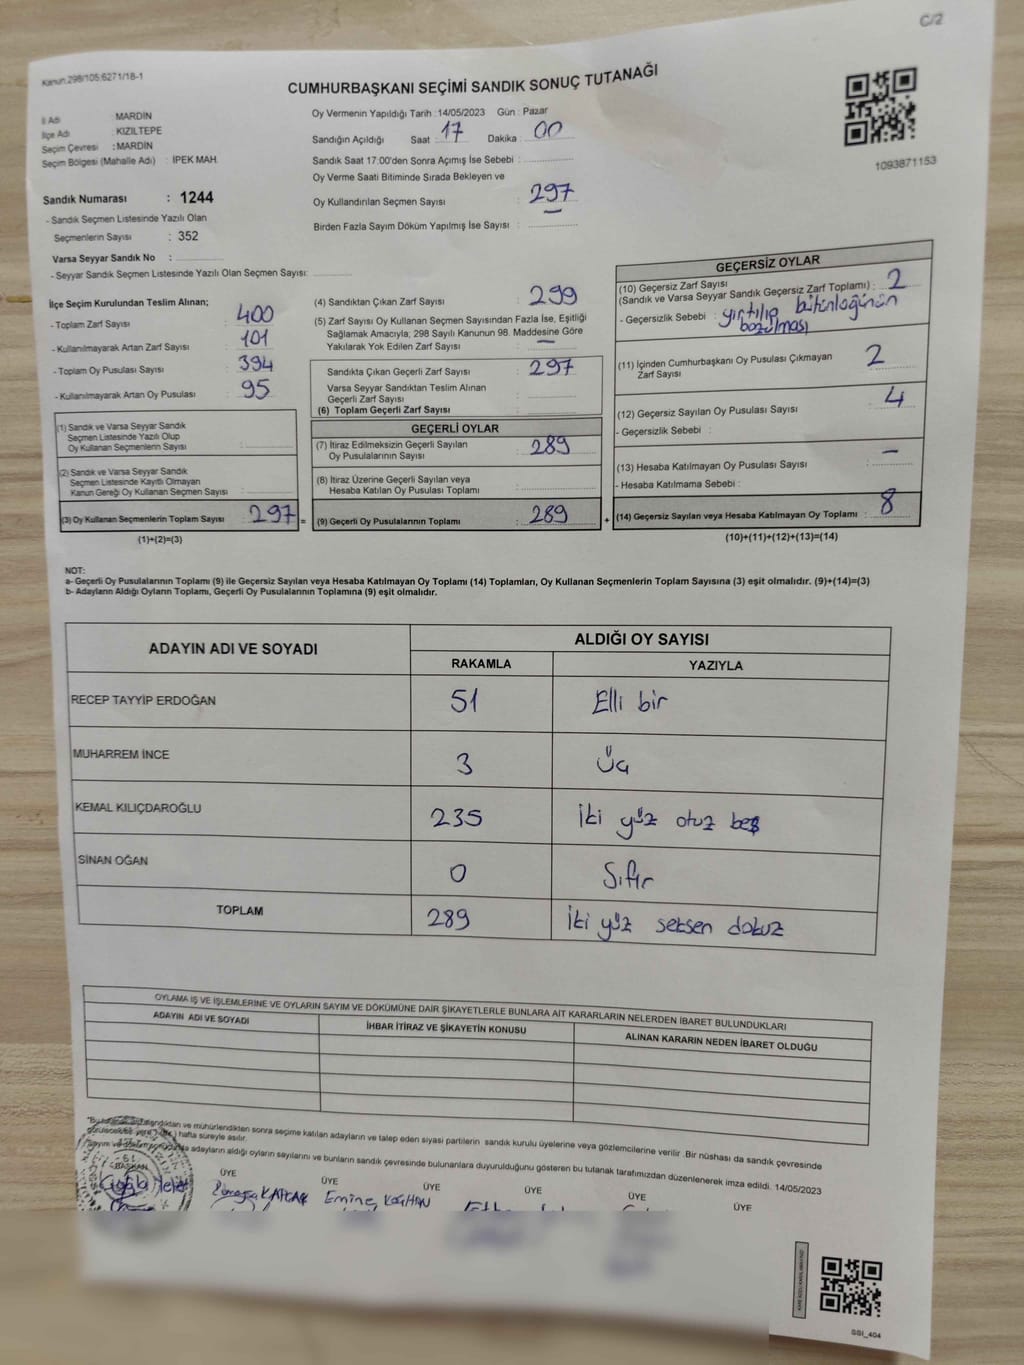 C/2
Kanun.298/105;6271/18-1
CUMHURBAŞKANI SEÇİMİ SANDIK SONUÇ TUTANAĞI
İl Adı : MARDİN
İlçe Adı : KIZILTEPE
Seçim Çevresi : MARDİN
Seçim Bölgesi (Mahalle Adı) : İPEK MAH.
Oy Vermenin Yapıldığı Tarih :14/05/2023 Gün : Pazar
Sandığın Açıldığı Saat : 17 Dakika : 00
Sandık Saat 17:00'den Sonra Açımış İse Sebebi :
Oy Verme Saati Bitiminde Sırada Bekleyen ve
Oy Kullandırılan Seçmen Sayısı : 297
Birden Fazla Sayım Döküm Yapılmış İse Sayısı :
1093871153
Sandık Numarası : 1244
- Sandık Seçmen Listesinde Yazılı Olan
Seçmenlerin Sayısı : 352
Varsa Seyyar Sandık No :
- Seyyar Sandık Seçmen Listesinde Yazılı Olan Seçmen Sayısı:
İlçe Seçim Kurulundan Teslim Alınan;
- Toplam Zarf Sayısı : 400
- Kullanılmayarak Artan Zarf Sayısı : 101
- Toplam Oy Pusulası Sayısı : 394
- Kullanılmayarak Artan Oy Pusulası : 95
(1) Sandık ve Varsa Seyyar Sandık
Seçmen Listesinde Yazılı Olup
Oy Kullanan Seçmenlerin Sayısı :
(2) Sandık ve Varsa Seyyar Sandık
Seçmen Listesinde Kayıtlı Olmayan
Kanun Gereği Oy Kullanan Seçmen Sayısı :
(3) Oy Kullanan Seçmenlerin Toplam Sayısı : 297 =
(1)+(2)=(3)
(4) Sandıktan Çıkan Zarf Sayısı : 299
(5) Zarf Sayısı Oy Kullanan Seçmen Sayısından Fazla İse, Eşitliği
Sağlamak Amacıyla; 298 Sayılı Kanunun 98. Maddesine Göre
Yakılarak Yok Edilen Zarf Sayısı : —
Sandıkta Çıkan Geçerli Zarf Sayısı : 297
Varsa Seyyar Sandıktan Teslim Alınan
Geçerli Zarf Sayısı :
(6) Toplam Geçerli Zarf Sayısı :
GEÇERLİ OYLAR
(7) İtiraz Edilmeksizin Geçerli Sayılan
Oy Pusulalarının Sayısı : 289
(8) İtiraz Üzerine Geçerli Sayılan veya
Hesaba Katılan Oy Pusulası Toplamı :
(9) Geçerli Oy Pusulalarının Toplamı : 289 +
GEÇERSİZ OYLAR
(10) Geçersiz Zarf Sayısı
(Sandık ve Varsa Seyyar Sandık Geçersiz Zarf Toplamı) : 2
- Geçersizlik Sebebi : yırtılıp bütünlüğünün
bozulması
(11) İçinden Cumhurbaşkanı Oy Pusulası Çıkmayan
Zarf Sayısı : 2
(12) Geçersiz Sayılan Oy Pusulası Sayısı : 4
- Geçersizlik Sebebi :
(13) Hesaba Katılmayan Oy Pusulası Sayısı : —
- Hesaba Katılmama Sebebi :
(14) Geçersiz Sayılan veya Hesaba Katılmayan Oy Toplamı : 8
(10)+(11)+(12)+(13)=(14)
NOT:
a- Geçerli Oy Pusulalarının Toplamı (9) ile Geçersiz Sayılan veya Hesaba Katılmayan Oy Toplamı (14) Toplamları, Oy Kullanan Seçmenlerin Toplam Sayısına (3) eşit olmalıdır. (9)+(14)=(3)
b- Adayların Aldığı Oyların Toplamı, Geçerli Oy Pusulalarının Toplamına (9) eşit olmalıdır.
ADAYIN ADI VE SOYADI ALDIĞI OY SAYISI
RAKAMLA YAZIYLA
RECEP TAYYİP ERDOĞAN 51 Elli bir
MUHARREM İNCE 3 Üç
KEMAL KILIÇDAROĞLU 235 İki yüz otuz beş
SİNAN OĞAN 0 Sıfır
TOPLAM 289 İki yüz seksen dokuz
OYLAMA İŞ VE İŞLEMLERİNE VE OYLARIN SAYIM VE DÖKÜMÜNE DAİR ŞİKAYETLERLE BUNLARA AİT KARARLARIN NELERDEN İBARET BULUNDUKLARI
ADAYIN ADI VE SOYADI İHBAR İTİRAZ VE ŞİKAYETİN KONUSU ALINAN KARARIN NEDEN İBARET OLDUĞU
ve mühürlendikten sonra seçime katılan adayların ve talep eden siyasi partilerin sandık kurulu üyelerine veya gözlemcilerine verilir .Bir nüshası da sandık çevresinde
hafta süreyle asılır.
adayların aldığı oyların sayılarını ve bunların sandık çevresinde bulunanlara duyurulduğunu gösteren bu tutanak tarafımızdan düzenlenerek imza edildi. 14/05/2023
BAŞKAN ÜYE ÜYE ÜYE ÜYE ÜYE ÜYE
Emine
SSI_404